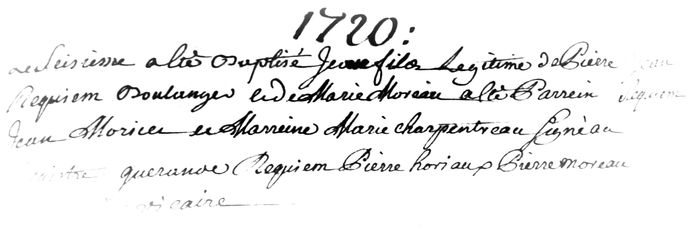 1720:
Le Seisiesme a été Baptisé Jean fils Legitime de Pierre Jean
Requiem Boulanger et de Marie Moreau a été Parrein Requiem
Jean Morices et Marreine Marie charpentreau Signé au
Registre querande Requiem Pierre horiaux Pierre moreau
vicaire